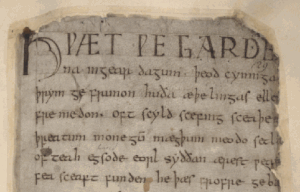 HǷÆT ǷE GARDE
na ingear dagum. þeod cyninga
þrym ge frunon huða æþelingas elle
fre medon. oft scyld scefing sceaþe
þreatum monegū mægþum meodo setl
of teah egsode eorl syððan ærest ƿear
fea sceaft funden he þæs frofre geba